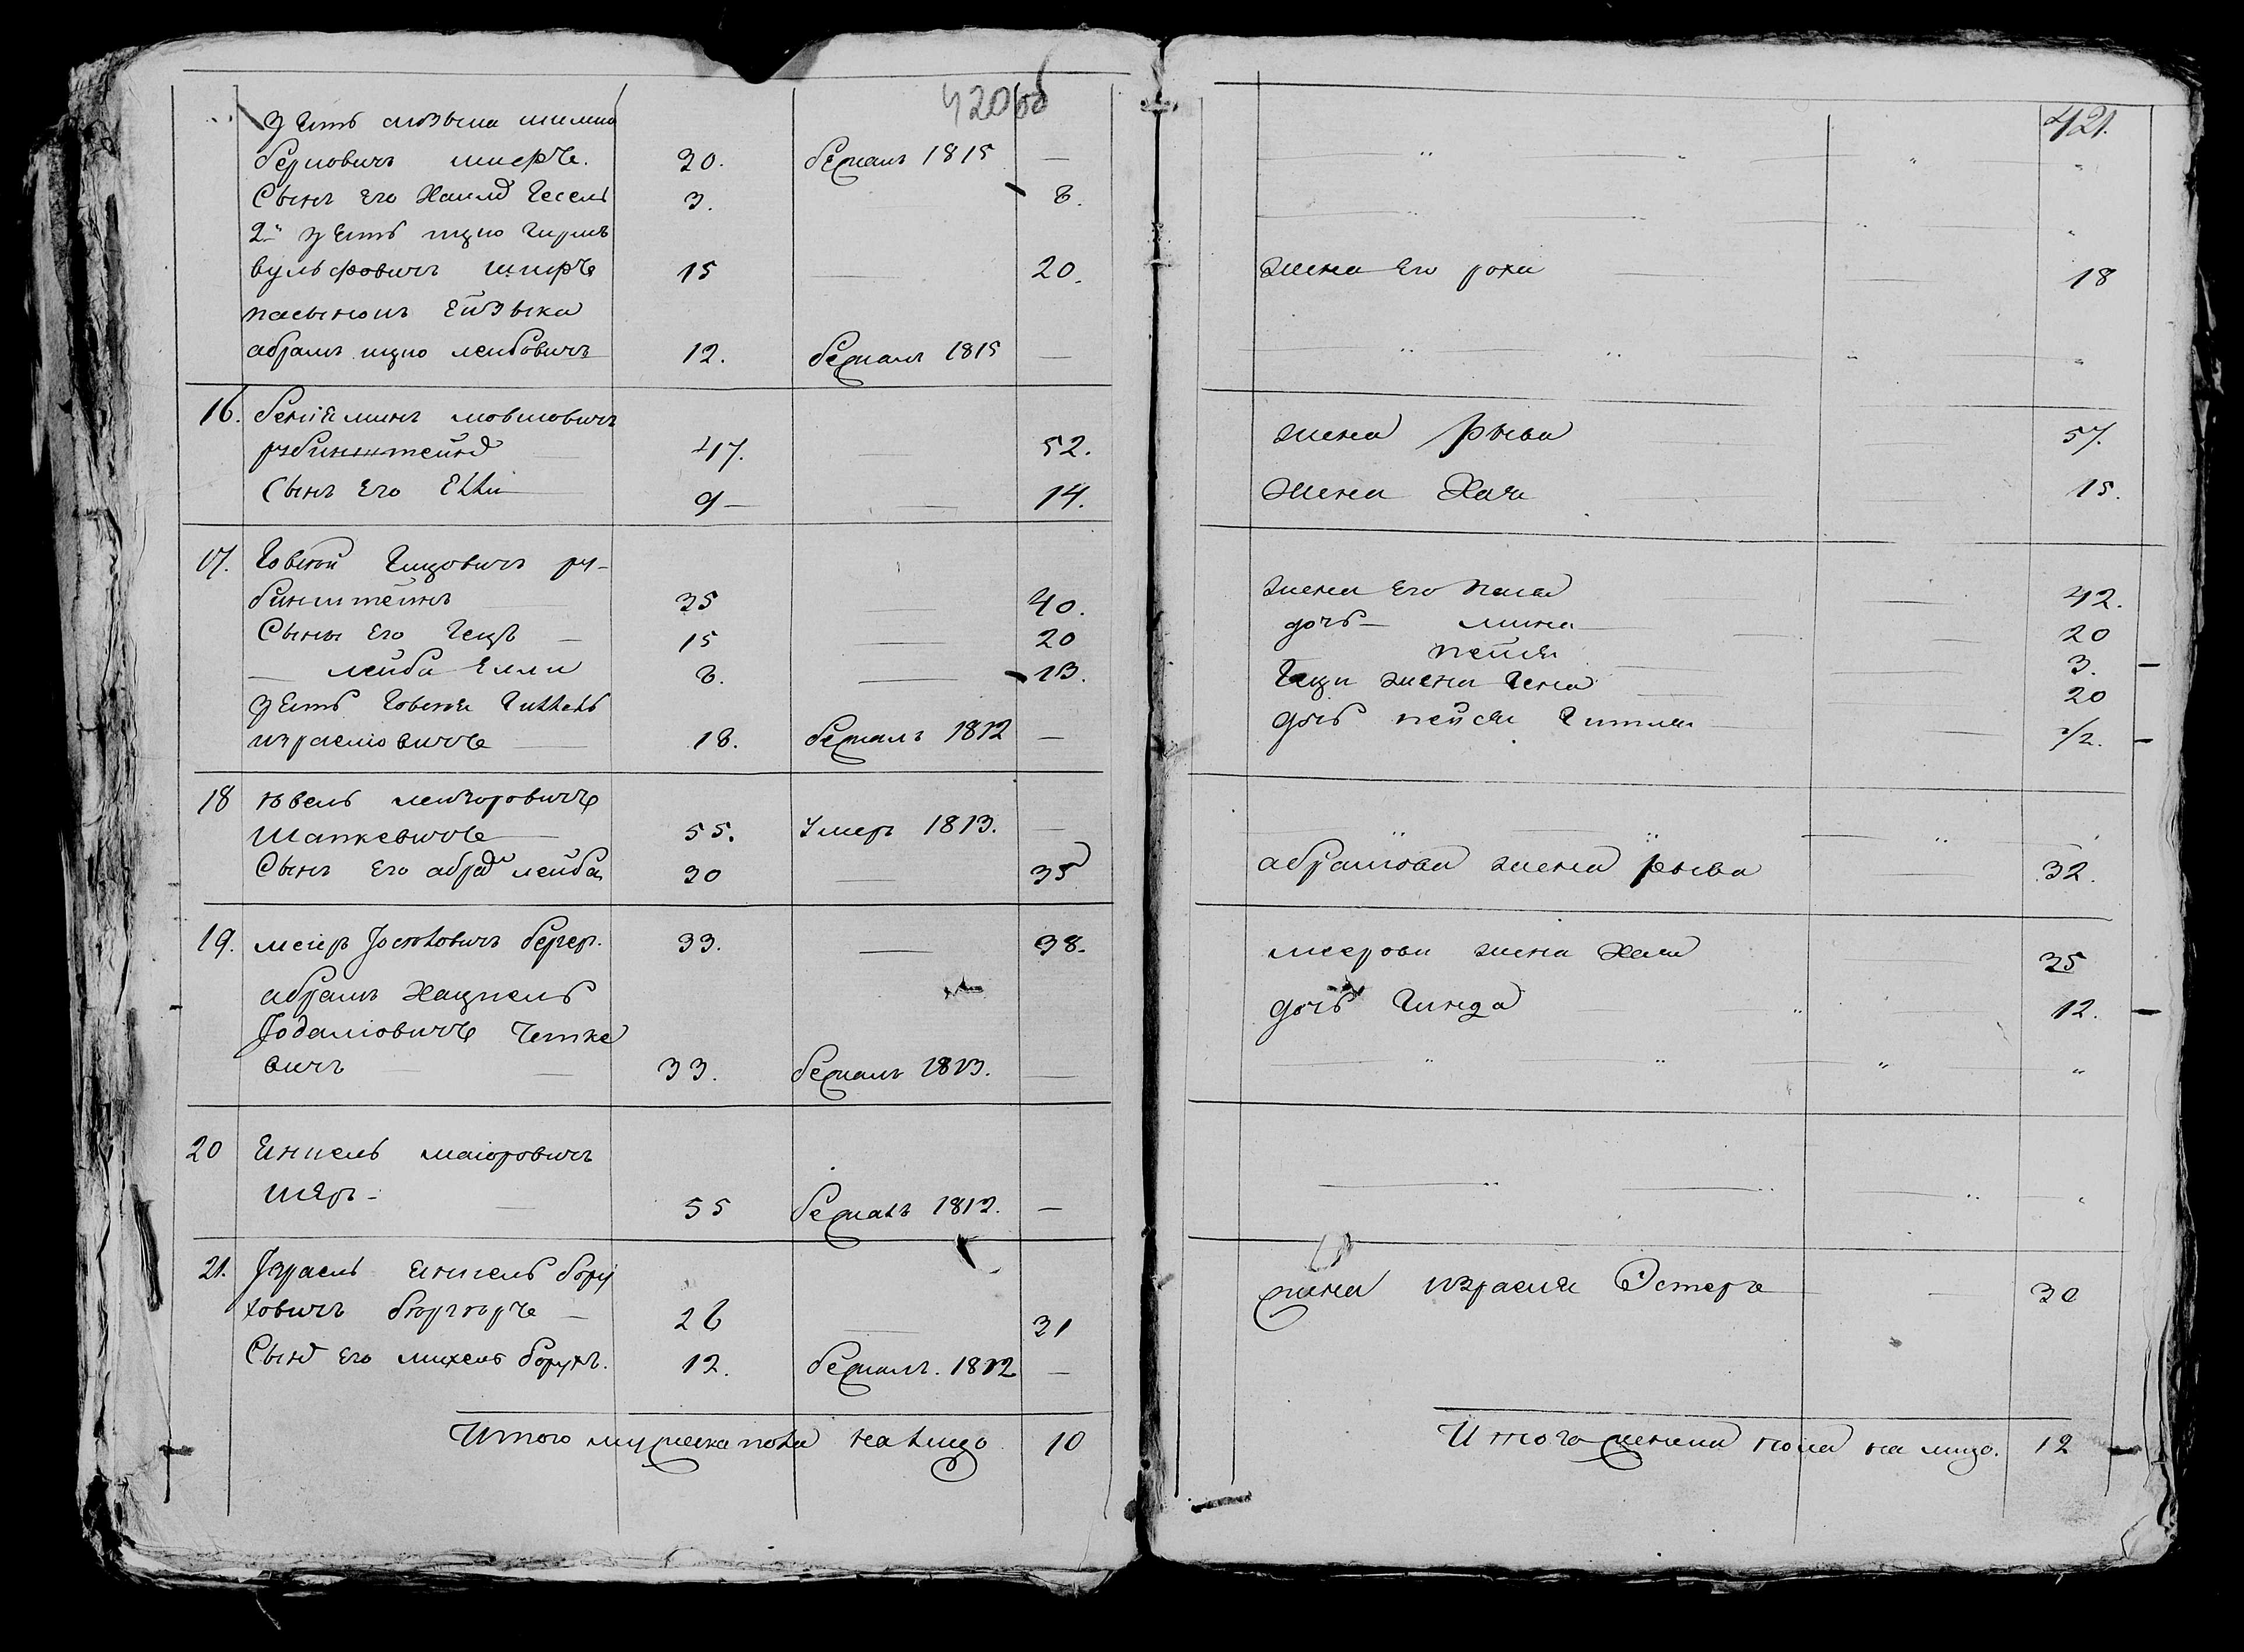 420об
зять
берковичъ 30. бежалъ 1815 —
Сынъ его Хаимъ Гесель 3. 8.
2й зять ицко гиршъ
вульфовичъ 15 — 20.
пасынокъ Ейзыка
абрамъ ицко лейбовичъ 12. бежалъ 1815 —
16. бениаминъ мовшовичъ
рубинштейнъ 47. — 52.
Сынъ его Елли 9 — 14.
17. Говсей Гецовичъ ру-
бинштейнъ 35 — 40.
Сыны его Гецъ — 15 — 20
— лейба Елли 8. — 13.
зять Говсея
израелiовичъ 18. бежалъ 1812 —
18 лейзоровичъ
Шапкевичъ 55. Умеръ 1813. —
Сынъ его абрамъ лейба 30 — 35
19. меiеръ Iосiовичъ бергеръ. 33. — 38.
абрамъ Хацкель
вичъ — 33. бежалъ 1813. —
20 Янкель маiоровичъ
55 бежалъ 1812. —
21. Iзраель янкель бору
ховичъ 26 — 31
Сынъ его михель борухъ. 12. бежалъ. 1812 —
Итого мужеска пола на лицо 10
421.
жена его рохи 18
жена рыва 57.
жена Хая 15.
жена его 42.
дочь — мина 20
пейся 3.
Геци жена Гена 20
дочь пейси Гитли 1/2.
абрамова жена рыва 32.
меерова жена Хая 35
дочь Гинда 12.
жена израеля Эстеръ 30
Итого женска пола на лицо. 12